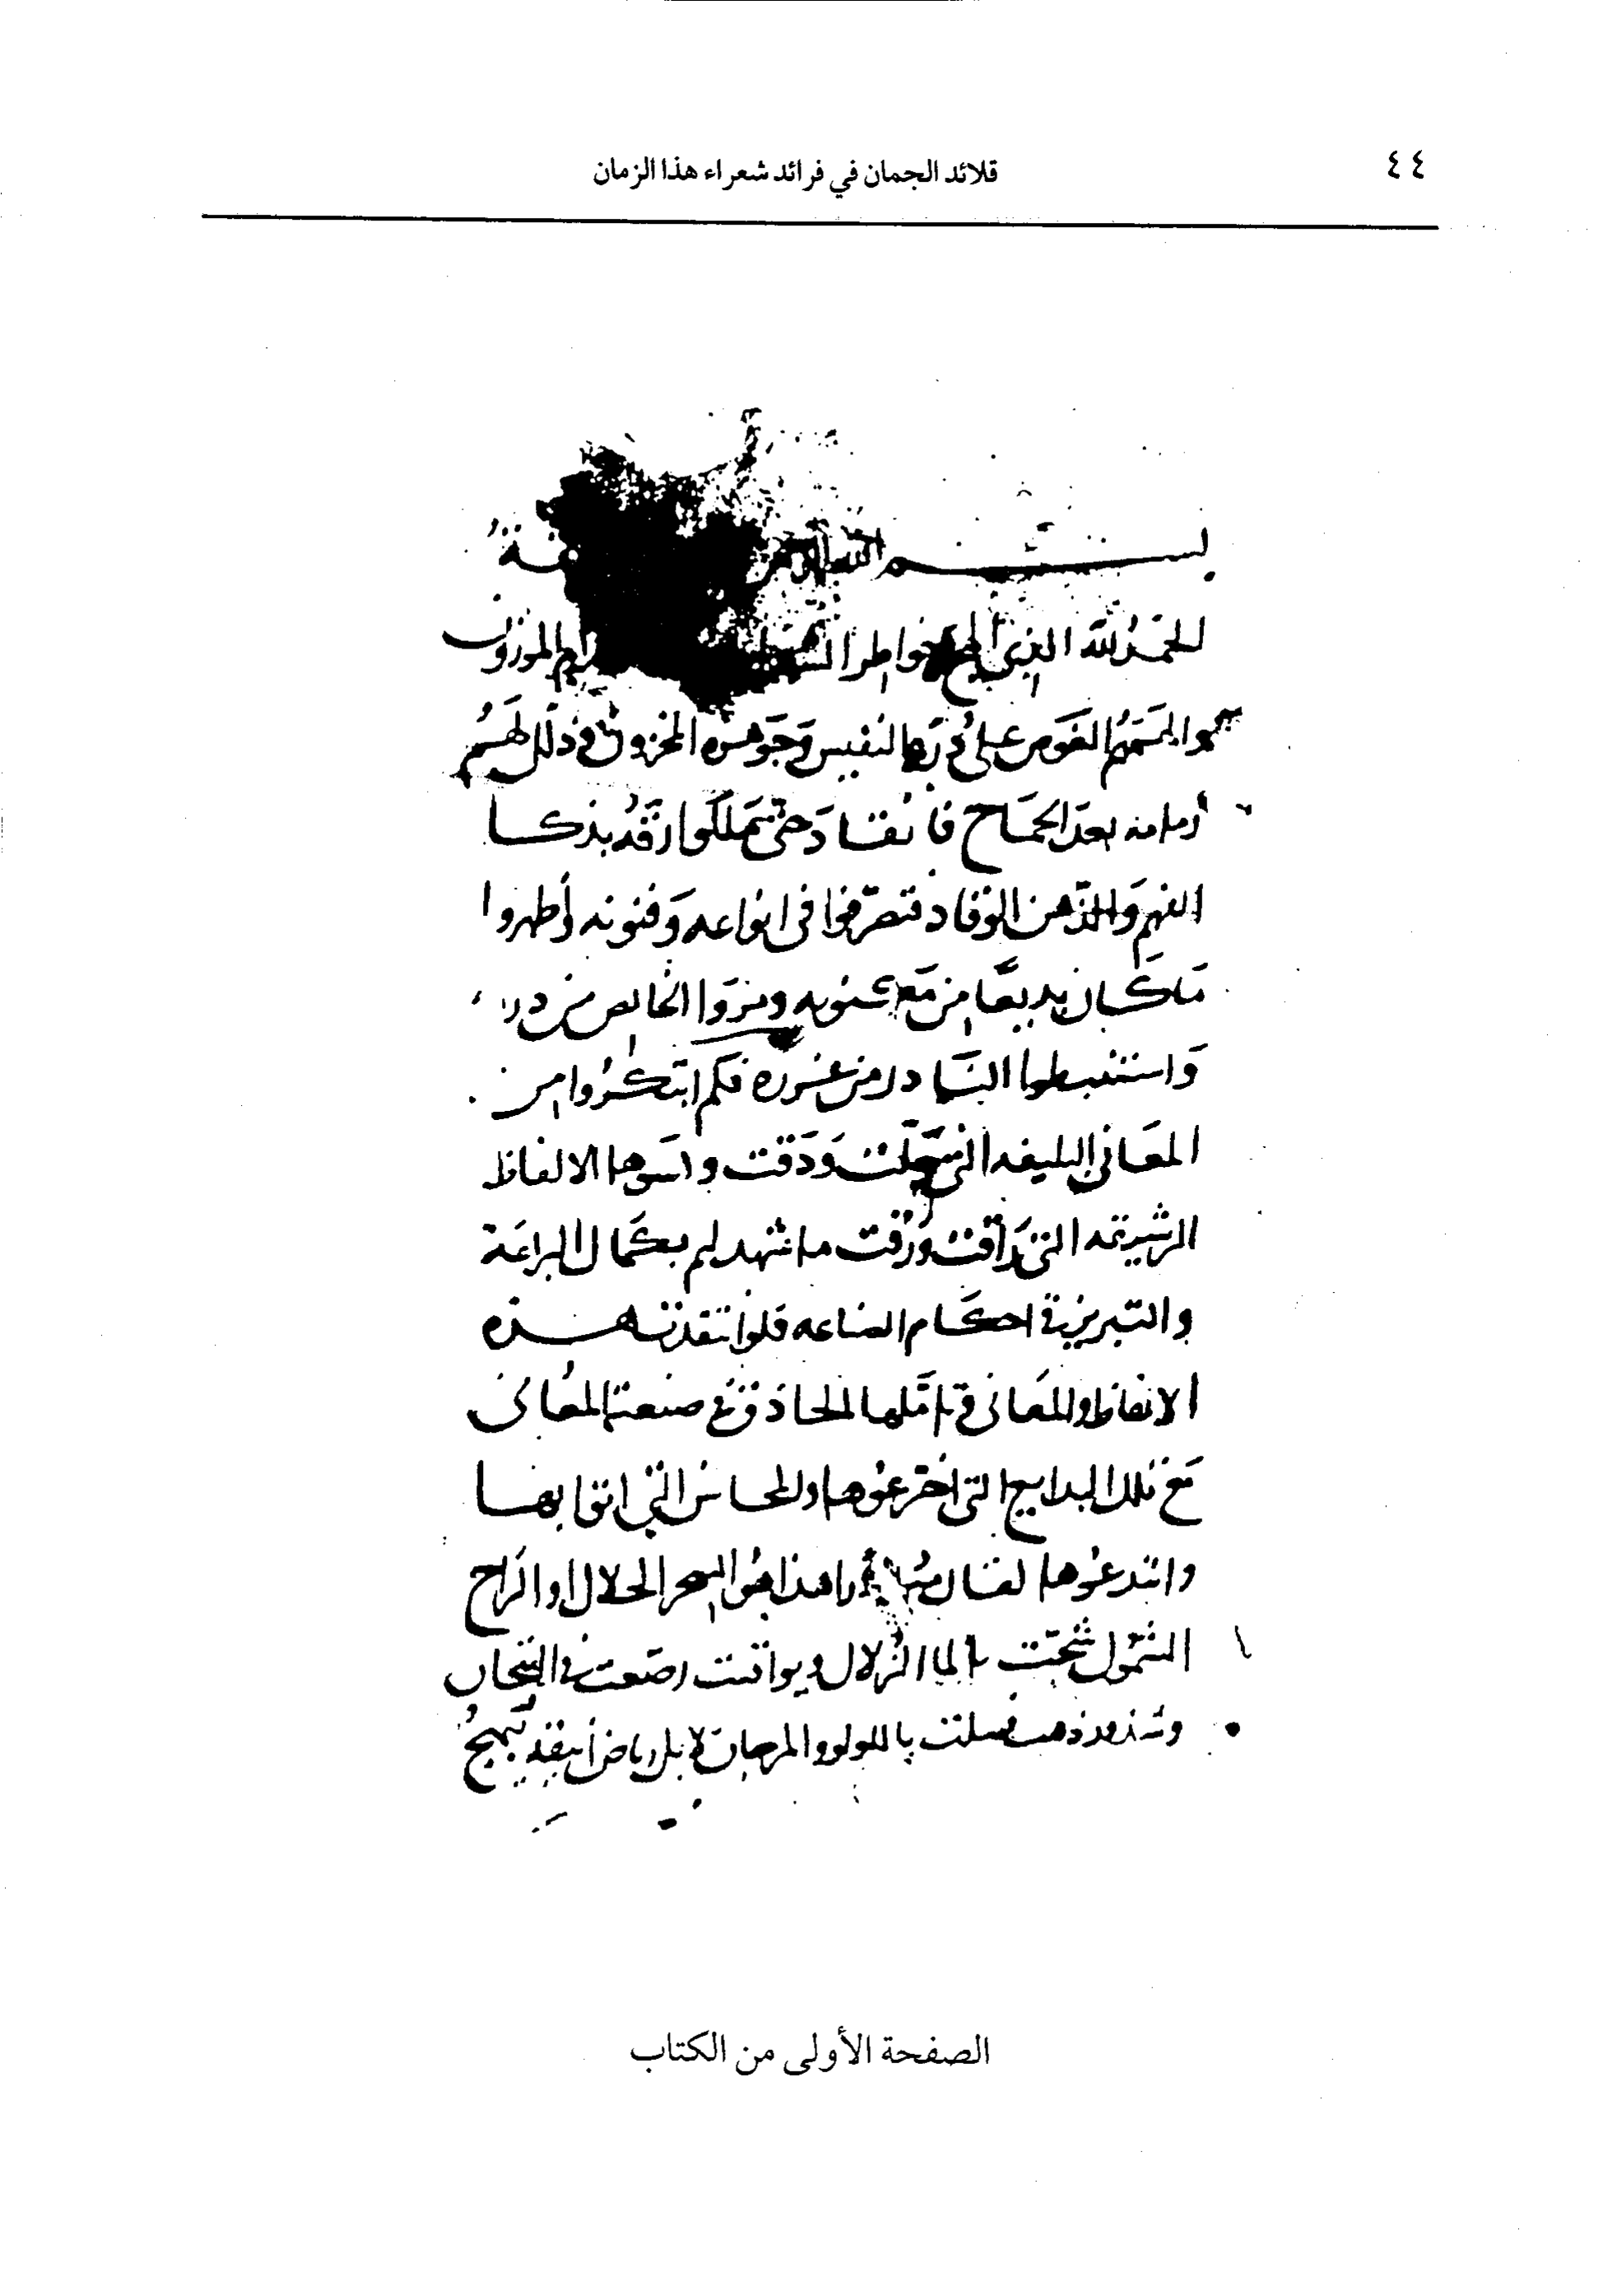 ٤٤
قلائد الجمان في فرائد شعراء هذا الزمان
بسم الله
الحمد لله الذي خواطر الموزون
الغوص على النفيس وجوهره المخزون وذلل لهم
زمامه بعد الجماح فانقاد حتى تملكوا رقه بذكا
الفهم والذهن الوقاد فتصرفوا في انواعه وفنونه وأظهروا
ما كان بديعا من مكنونه وميزوا الخالص من درره
واستنبطوا النادر من غرره فكم ابتكروا من
المعاني البليغه التي جلت ودقت وكسوها الالفاظ
الرشيقه التي راقت ورقت ما شهد لهم بكمال البراعة
والتبريز في احكام الصناعه فلو انتقدت هذه
الالفاظ والمعاني وتاملها الحاذق في صنعة المعاني
مع تلك البدايع التي اخترعوها والمحاسن التي اتوا بها
وابتدعوها لقال ما هذا الا السحر الحلال او الراح
الشمول شجت بالماء الزلال ويواقيت رصعت في التيجان
وشذور ذهب فصلت باللولو والمرجان لا بل رياض أنيقه تبهج
الصفحة الأولى من الكتاب